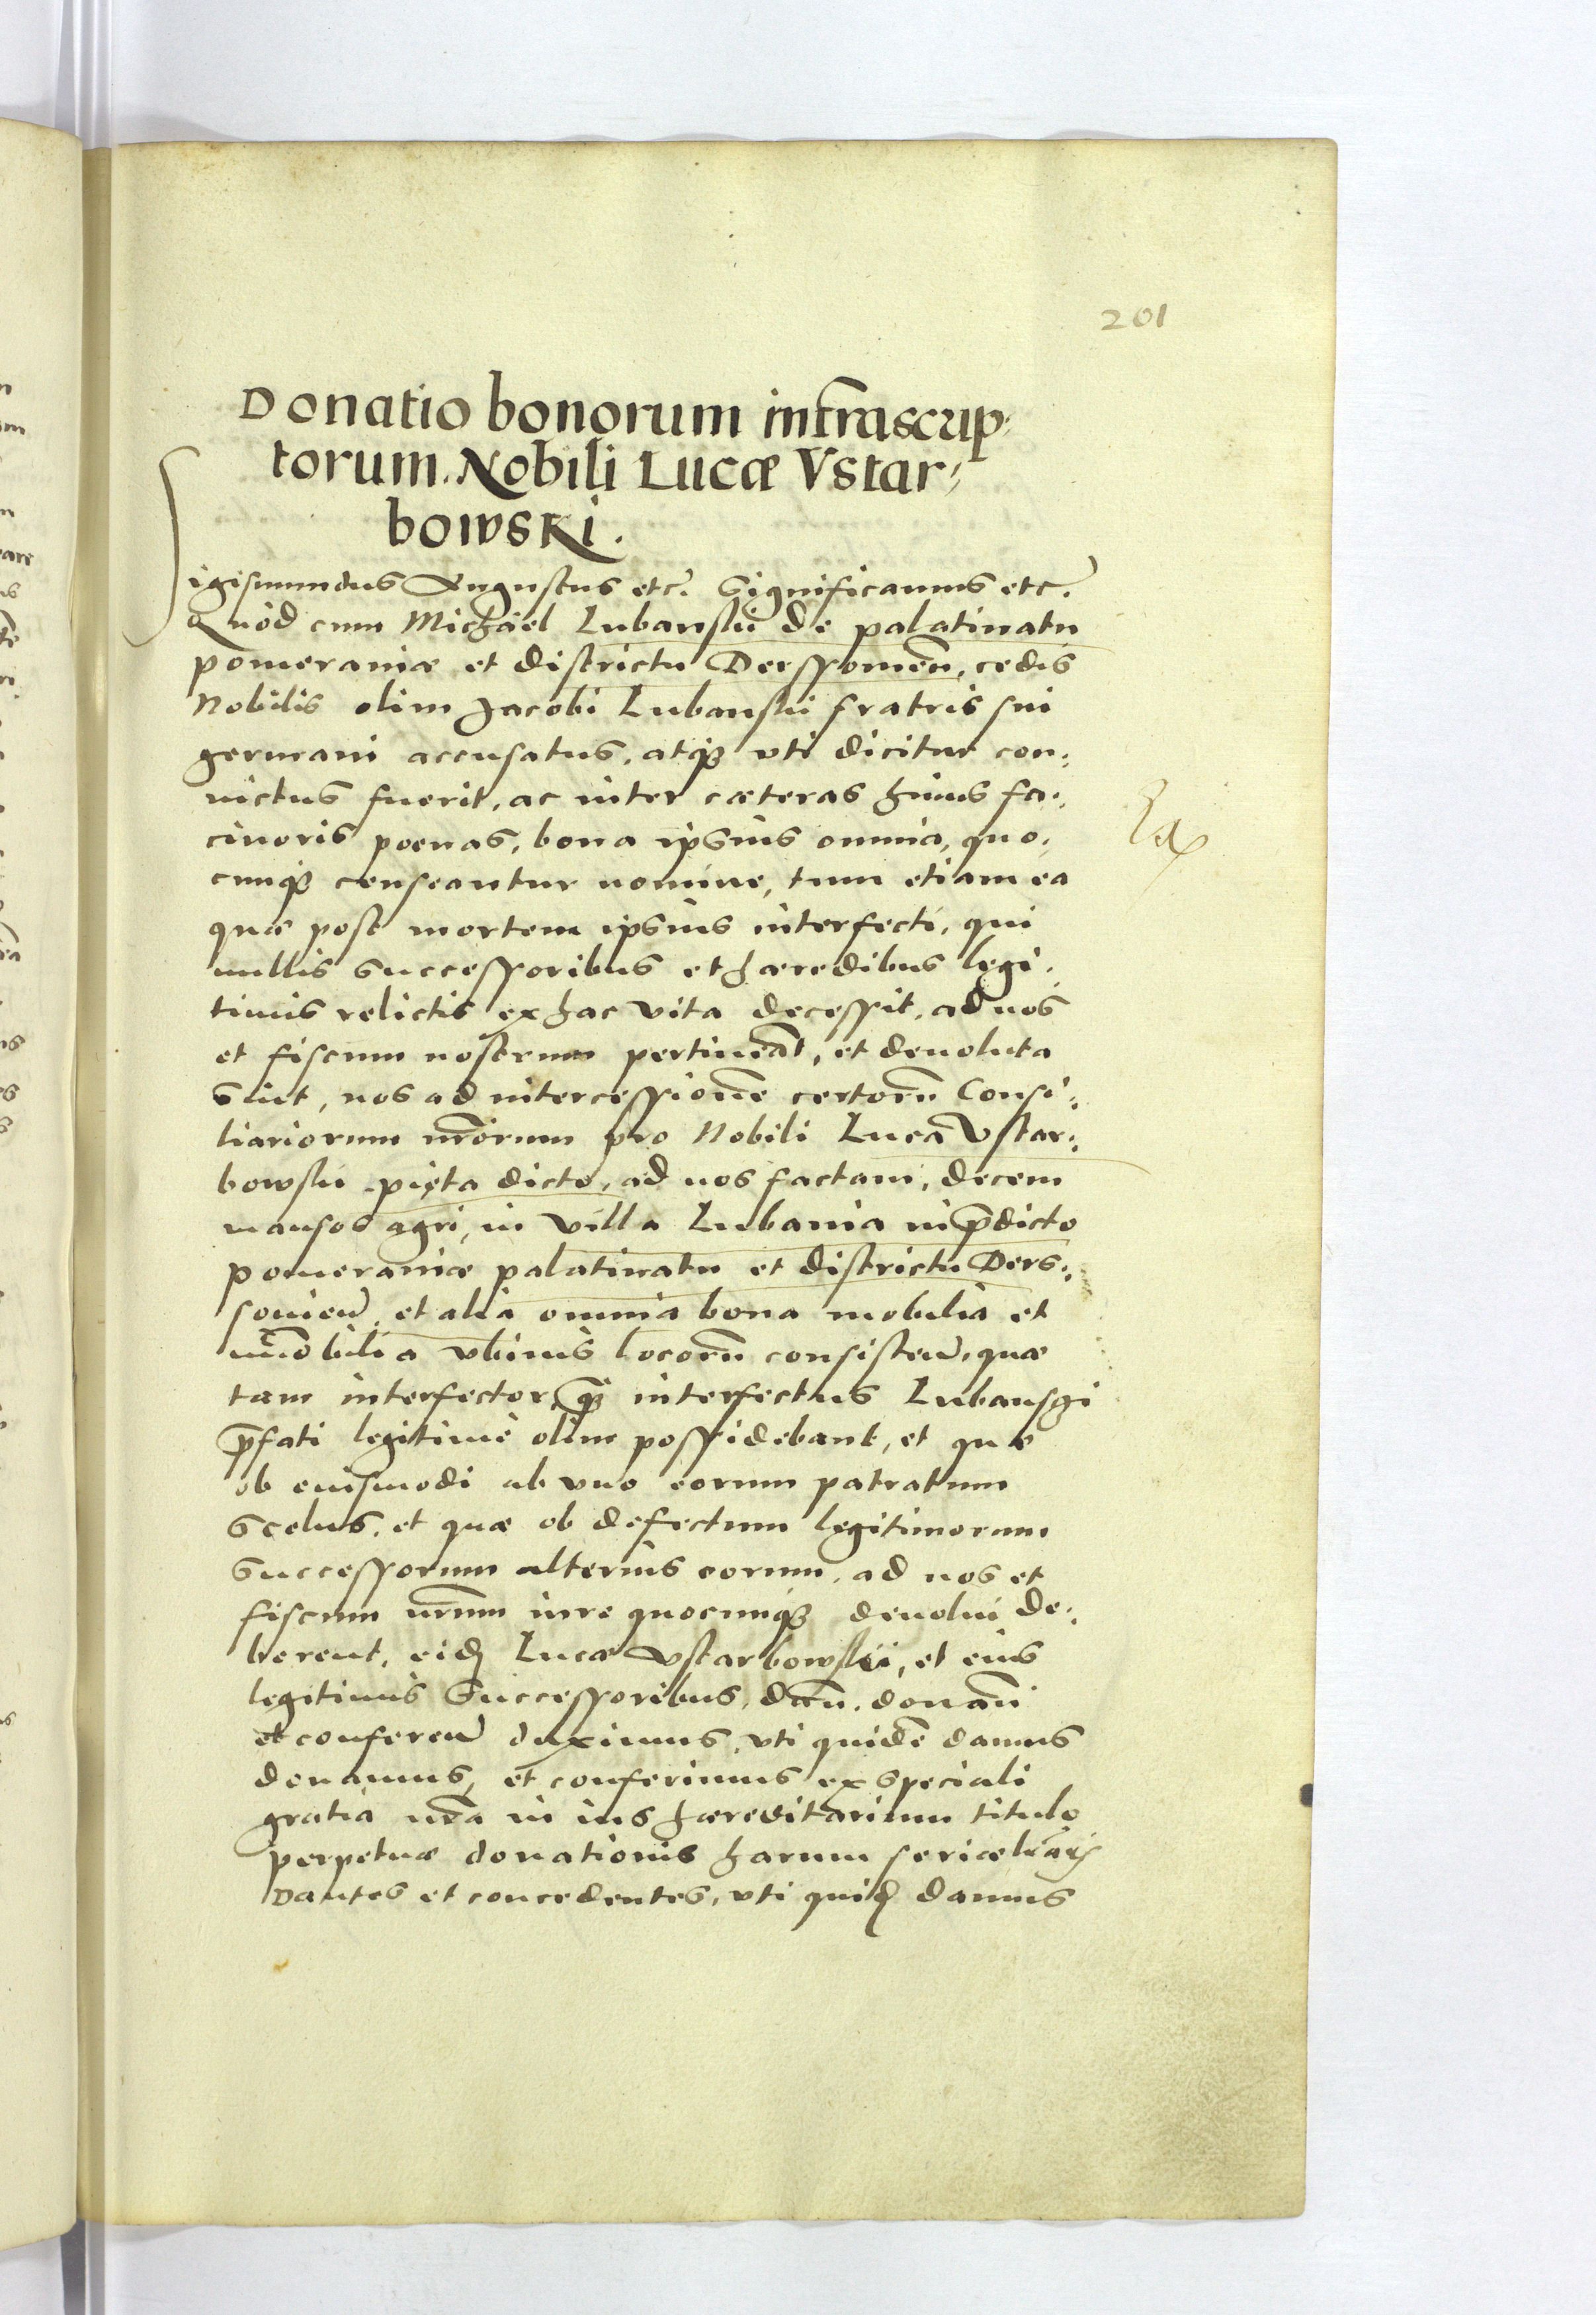 201
Donatio bonorum infrascrip-
torum. Nobili Lucæ Vstar-
bowski.
Sigismundus Augustus etc. Significamus etc.
Quòd cum Michael Lubanskii de palatinatu
pomeraniæ et districtu Derssovien̄, cedis
Nobilis olim Jacobi Lubanskii fratris sui
germani accusatus, atq3 vti dicitur con-
uictus fuerit, ac inter cæteras huius fa-
cinoris poenas, bona ipsius omnia, quo-
cunq3 censeantur nomine, tum etiam ea
quæ post mortem ipsius interfecti, qui
nullis successoribus et hæredibus legi-
timis relictis ex hac vita decessit, ad nos
et fiscum nostrum pertineāt, et deuoluta
sint, nos ad intercessionē certorū Consi-
liariorum nr̄orum pro Nobili Luca Vstar-
bowskii pięta dicto, ad nos factam, decem
mansos agri, in villa Lubania in p̄dicto
pomeraniæ palatinatu et districtu Ders-
souien̄, et alia omnia bona mobilia et
im̄obilia vbiuis locorū consisten̄, quæ
tam interfector, q̃3 interfectus Lubansgi
p̄fati legitimè olim possidebant, et quæ
ob eiusmodi ab vno eorum patratum
scelus, et quæ ob defectum legitimorum
successorum alterius eorum, ad nos et
fiscum nr̄um iure quocunq3 deuolui de-
berent, eid. Lucæ Vstarbowskii, et eius
legitimis Successoribus, dan̄. donan̄
et conferen̄ duximus, vti quidē damus
donamus, et conferimus ex speciali
gratia nr̄a in ius hæreditarium titulo
perpetuæ donationis harum serie lr̄aru.
Dantes et concedentes, vti quid. damus